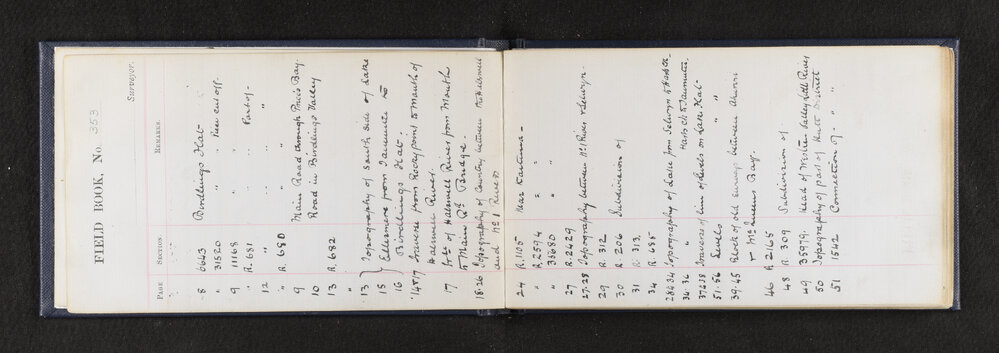 FIELD BOOK, No. 353
Surveyor.
PAGE SECTION REMARKS.
8 6643 Birdlings Flat
" 31520 " " Pear cut off.
9 11168 "
" R. 681 " Part of
12 " "
" R. 680 "
9 Main Road through Price's Bay.
10 Road in Birdlings Valley
13 R. 682
"
13 Topography of South side of Lake
15 Ellesmere from Taumutu to
16 Birdlings Flat.
14&17 Traverse from Rocky point to Mouth of
Halswell River.
17 Pt. of Halswell River from Mouth
to Main Rd. Bridge
18-26 Topography of Country between Halswell
and No. 1 River
24 R. 1105 Near Kaituna
" R 2594 " "
" 33680 " "
27 R. 2429
27-28 Topography between No. 1 River & Selwyn.
29 R. 312
30 R. 206 Subdivision of
31 R. 313.
34 R. 685
28&34 Topography of Lake from Selwyn to Harts Ck.
34-36 " " " Harts Ck to Taumutu.
37&38 Traverse of line of levels on Lake Flat
51-56 Levels " "
39-45 Block of old survey between Awaroa
& McQueens Bay.
46 R 2165
48 R. 309 Subdivision of.
49 35979. Head of Western Valley Little River
50 Topography of part of Hutt District
51 1542 Connection of " "